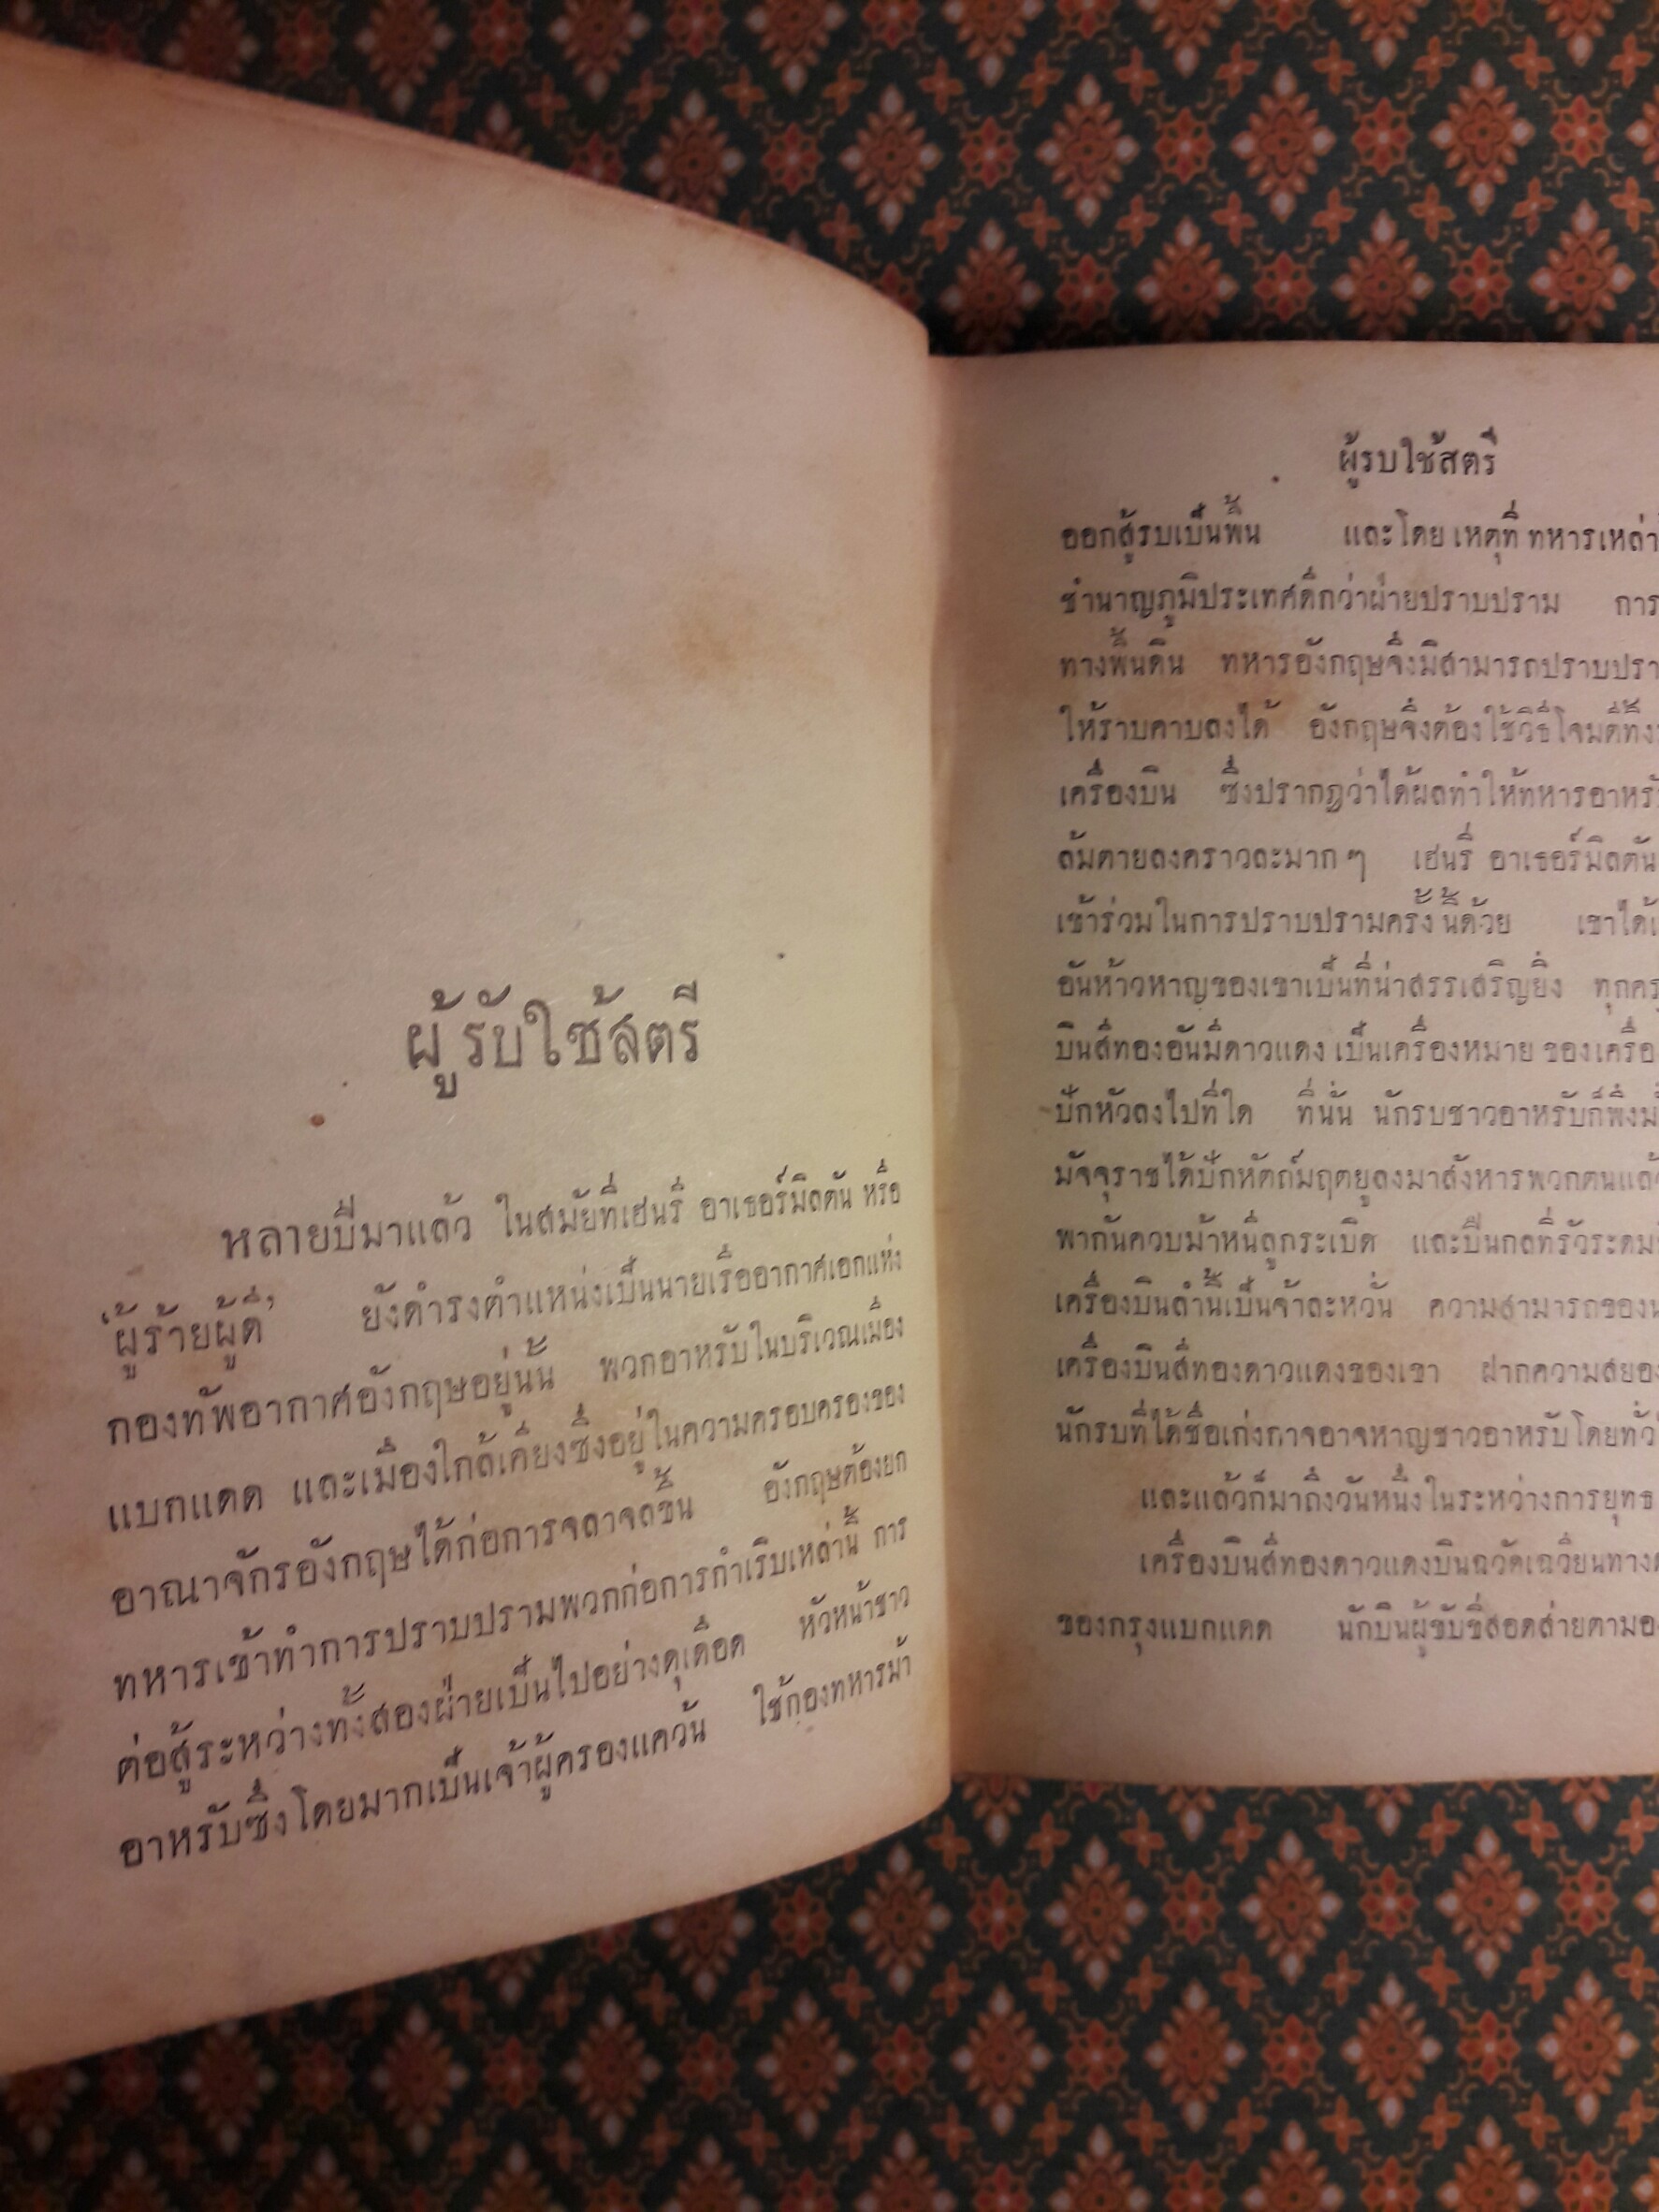 ผู้รับใช้สตรี
หลายปีมาแล้ว ในสมัยที่เฮนรี่ อาเธอร์มิลตัน หรือ
‘ผู้ร้ายผู้ดี’ ยังดำรงตำแหน่งเป็นนายเรืออากาศเอกแห่ง
กองทัพอากาศอังกฤษอยู่นั้น พวกอาหรับในบริเวณเมือง
แบกแดด และเมืองใกล้เคียงซึ่งอยู่ในความครอบครองของ
อาณาจักรอังกฤษได้ก่อการจลาจลขึ้น อังกฤษต้องยก
ทหารเข้าทำการปราบปรามพวกก่อการกำเริบเหล่านี้ การ
ต่อสู้ระหว่างทั้งสองฝ่ายเป็นไปอย่างดุเดือด หัวหน้าชาว
อาหรับซึ่งโดยมากเป็นเจ้าผู้ครองแคว้น ใช้กองทหารม้า
ผู้รบใช้สตรี
ออกสู้รบเป็นพื้น และโดย เหตุที่ ทหารเหล่า
ชำนาญภูมิประเทศดีกว่าฝ่ายปราบปราม การ
ทางพื้นดิน ทหารอังกฤษจึงมิสามารถปราบปรา
ให้ราบคาบลงได้ อังกฤษจึงต้องใช้วิธีโจมตีทิ้ง
เครื่องบิน ซึ่งปรากฏว่าได้ผลทำให้ทหารอาหรั
ล้มตายลงคราวละมาก ๆ เฮนรี่ อาเธอร์มิลตัน
เข้าร่วมในการปราบปรามครั้งนี้ด้วย เขาได้
อันห้าวหาญของเขาเป็นที่น่าสรรเสริญยิ่ง ทุกคร
บินสีทองอันมีดาวแดง เป็นเครื่องหมาย ของเครื่อ
ปักหัวลงไปที่ใด ที่นั่น นักรบชาวอาหรับก็พึง
มัจจุราชได้ปักหัตถ์มฤตยูลงมาสังหารพวกตนแล้
พากันควบม้าหนีลูกระเบิด และปืนกลที่รัวระดม
เครื่องบินลำนี้เป็นจ้าละหวั่น ความสามารถของ
เครื่องบินสีทองดาวแดงของเขา ฝากความสยอง
นักรบที่ได้ชื่อเก่งกาจอาจหาญชาวอาหรับโดยทั่ว
และแล้วก็มาถึงวันหนึ่งในระหว่างการยุทธ
เครื่องบินสีทองดาวแดงบินฉวัดเฉวียนทาง
ของกรุงแบกแดด นักบินผู้ขับขี่สอดส่ายตามอ